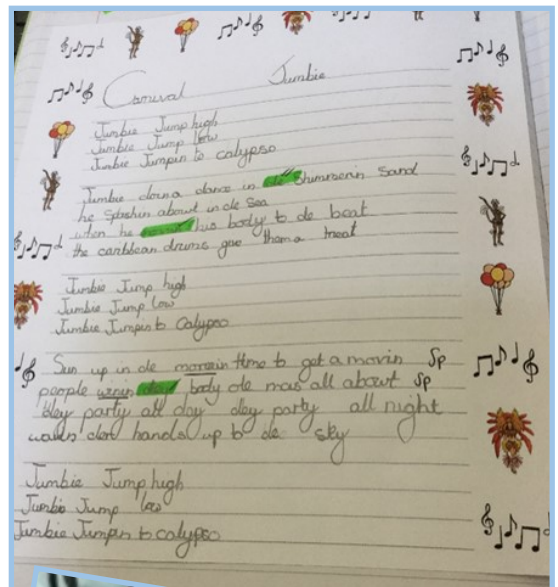 Carnival Jumbie
Jumbie Jump high
Jumbie Jump low
Jumbie Jumpin to calypso
Jumbie doin a dance in de Shimmerin Sand
he splashin about in de sea
when he his body to de beat
the caribbean drums give them a treat
Jumbie Jump high
Jumbie Jump low
Jumbie Jumpin to Calypso
Sun up in de time to get a movin Sp
people winin body de mas all about Sp
dey party all day dey party all night
hands up to de sky
Jumbie Jump high
Jumbie Jump low
Jumbie Jumpin to calypso